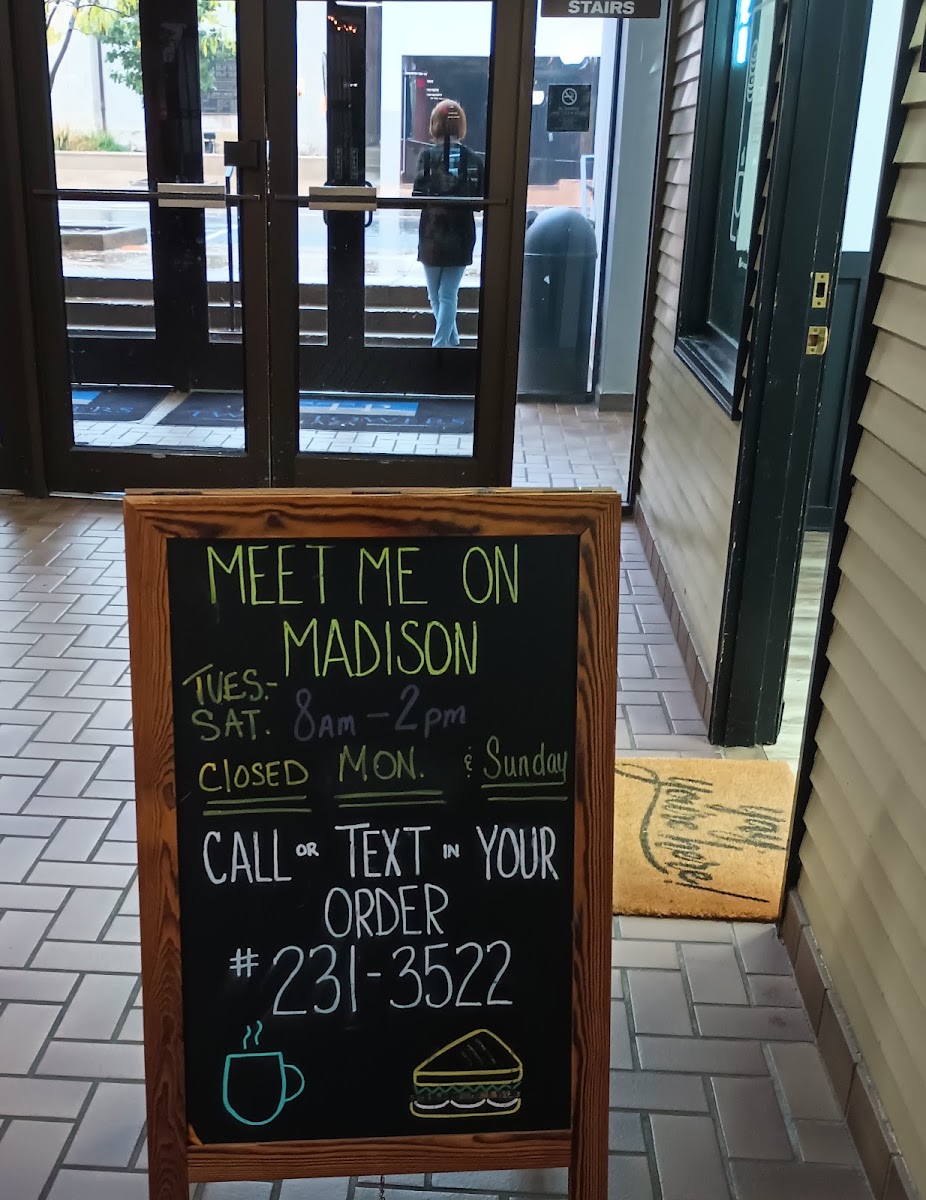 STAIRS
MEET ME ON
MADISON
TUES.-
SAT. 8AM-2PM
CLOSED MON. & Sunday
CALL OR TEXT IN YOUR
ORDER
#231-3522
yay
you're here!